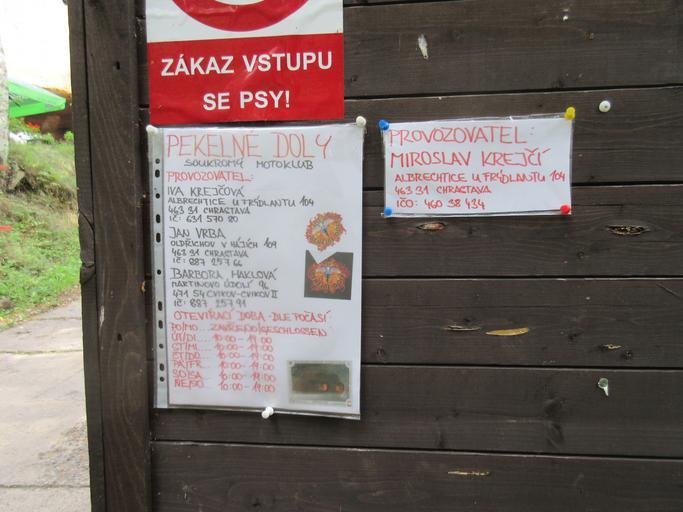 ZÁKAZ VSTUPU
SE PSY!
PEKELNÉ DOLY
SOUKROMÝ MOTOKLUB
PROVOZOVATEL:
IVA KREJČOVÁ
ALBRECHTICE U FRÝDLANTU 104
463 31 CHRASTAVA
IČ: 631 570 80
JAN VRBA
OLDŘICHOV V HÁJÍCH 109
463 31 CHRASTAVA
IČ: 887 257 66
BARBORA MAKLOVÁ
MARTINOVO ÚDOLÍ 96
471 54 CVIKOV-CVIKOV II
IČ: 887 257 91
OTEVÍRACÍ DOBA - DLE POČASÍ
PO/MO... ZAVŘENO/GESCHLOSSEN
ÚT/DI... 10:00 - 19:00
ST/MI... 10:00 - 19:00
ČT/DO... 10:00 - 19:00
PÁ/FR... 10:00 - 19:00
SO/SA... 10:00 - 19:00
NE/SO... 10:00 - 19:00
PROVOZOVATEL:
MIROSLAV KREJČÍ
ALBRECHTICE U FRÝDLANTU 104
463 31 CHRASTAVA
IČO: 460 38 434